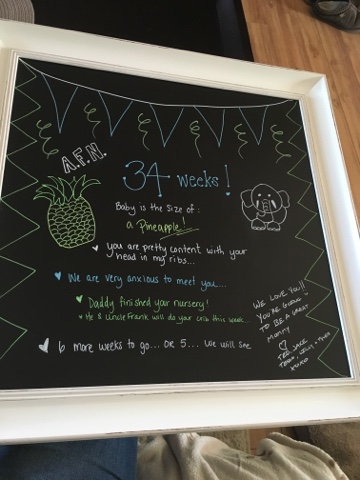 A.F.N.
34 weeks!
Baby is the size of:
a Pineapple!
you are pretty content with your
head in my ribs...
We are very anxious to meet you...
Daddy finished your nursery!
He & Uncle Frank will do your crib this week...
6 more weeks to go... or 5... we will see
WE LOVE YOU!!
YOU'RE GOING
TO BE A GREAT
MOMMY